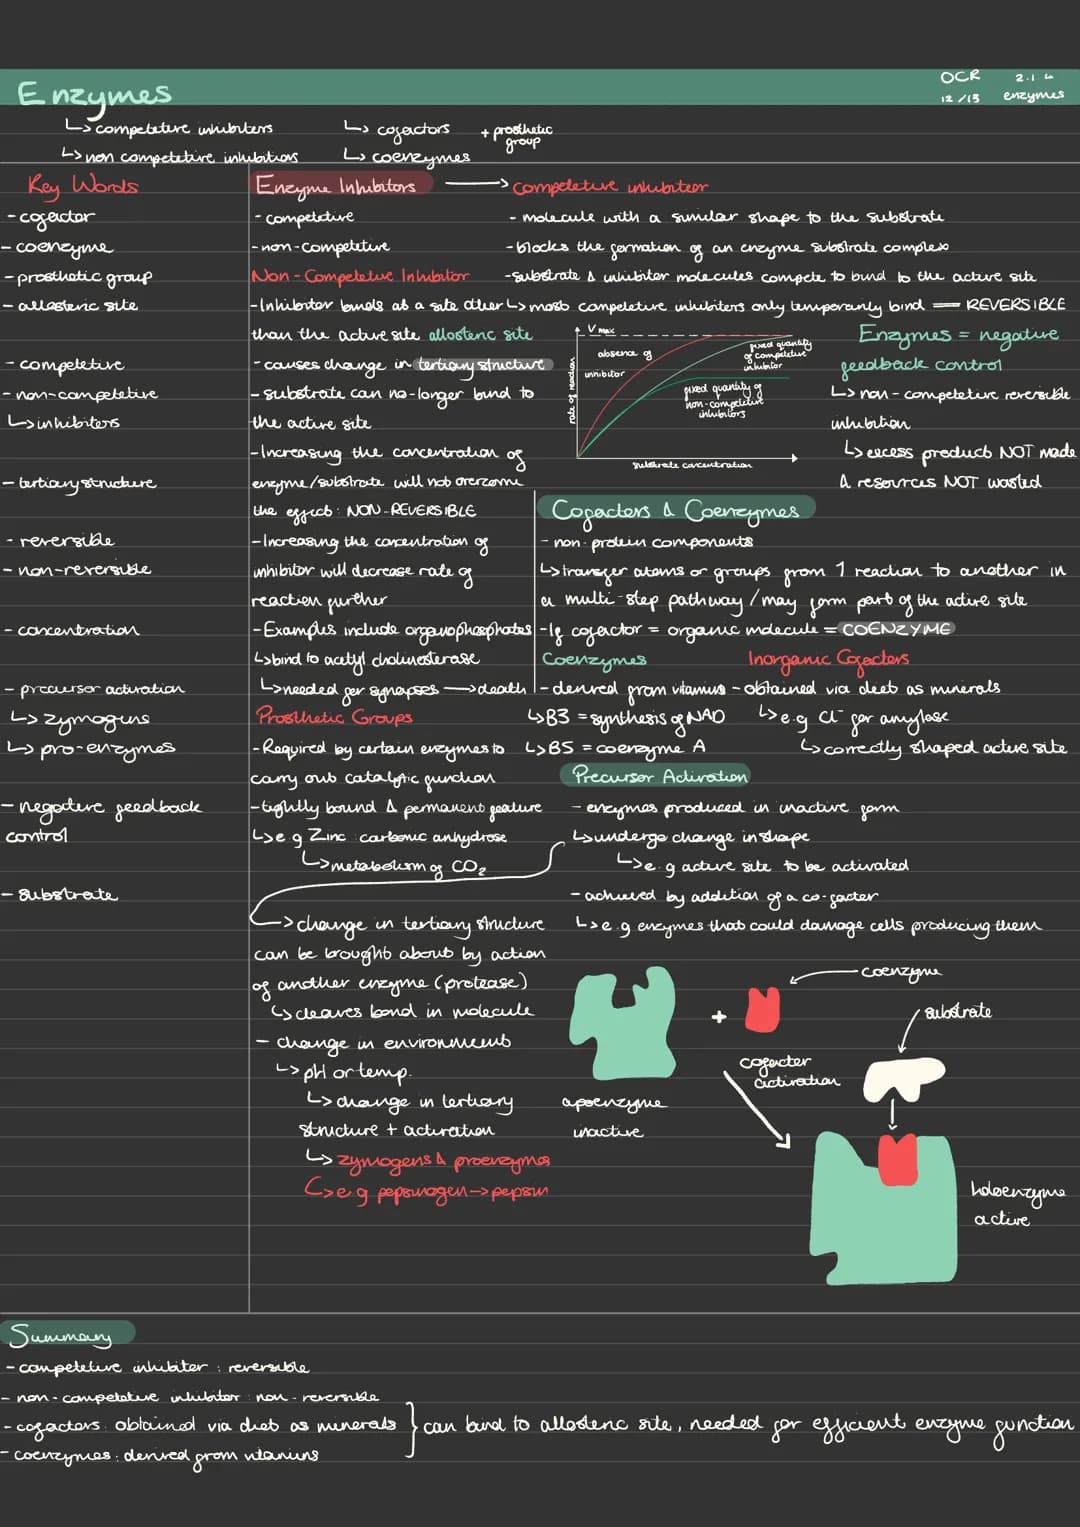 Enzymes
OCR 2.1.4
12/13 enzymes
↳ competetive inhibiters
↳ non competetive inhibitiors
↳ cofactors + prosthetic group
↳ coenzymes
Key Words
- cofactor
- coenzyme
- prosthetic group
- allosteric site
- competetive
- non-competetive
↳ inhibiters
- tertiary structure
- reversible
- non-reversible
- concentration
- precursor activation
↳ zymogens
↳ pro-enzymes
- negative feedback
control
- substrate
Enzyme Inhibitors → competetive inhibiteor
- competetive
- non-competetive
- molecule with a similar shape to the substrate
- blocks the formation of an enzyme substrate complex
- substrate & inhibiter molecules compete to bind to the active site
↳ most competetive inhibiters only temporarily bind = REVERSIBLE
Non-Competetive Inhibitor
- Inhibiter binds at a site other
than the active site allosteric site
- causes change in tertiary structure
- substrate can no-longer bind to
the active site
- Increasing the concentration of
enzyme/substrate will not overcome
the effect: NON-REVERSIBLE
- Increasing the concentration of
inhibitor will decrease rate of
reaction further
- Examples include organophosphates
↳ bind to acetyl cholinesterase
↳ needed for synapses → death
Vmax
absence of
inhibitor
fixed quantity
of competetive
inhibitor
fixed quantity of
non-competetive
inhibitors
rate of reaction
substrate concentration
Enzymes = negative
feedback control
↳ non-competetive reversible
inhibition
↳ excess product NOT made
& resources NOT wasted
Cofactors & Coenzymes
- non-protein components
↳ transfer atoms or groups from 1 reaction to another in
a multi-step pathway/may form part of the active site
- If cofactor = organic molecule = COENZYME
Coenzymes
- derived from vitamins
↳ B3 = synthesis of NAD
↳ B5 = coenzyme A
Inorganic Cofactors
- obtained via diet as minerals
↳ e.g Cl⁻ for amylase
↳ correctly shaped active site
Prosthetic Groups
- Required by certain enzymes to
carry out catalytic function
- tightly bound & permanent feature
↳ e.g Zinc: carbonic anhydrose
↳ metabolism of CO₂
Precursor Activation
- enzymes produced in inactive form
↳ undergo change in shape
↳ e.g active site to be activated
- achieved by addition of a co-factor
↳ e.g enzymes that could damage cells producing them
→ change in tertiary structure
can be broughts about by action
of another enzyme (protease)
↳ cleaves bond in molecule
- change in environments
↳ pH or temp.
↳ change in tertiary
structure + activation
↳ zymogens & proenzymes
↳ e.g pepsinogen → pepsin
coenzyme
+
substrate
cofacter
activation
apoenzyme
inactive
holoenzyme
active
Summary
- competetive inhibiter : reversible
- non-competetive inhibitor : non-reversible
- cofacters: obtained via diet as minerals
- coenzymes: derived from vitamins
} can bind to allosteric site, needed for efficient enzyme function